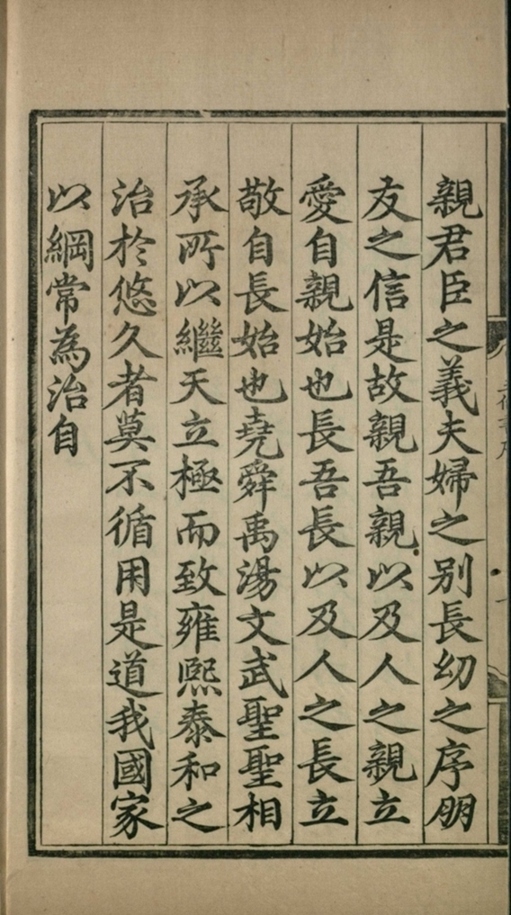 親君臣之義夫婦之别長幼之序朋
友之信是故親吾親以及人之親立
愛自親始也長吾長以及人之長立
敬自長始也堯舜禹湯文武聖聖相
承所以繼天立極而致雍熙泰和之
治於悠久者莫不循用是道我國家
以綱常為治自